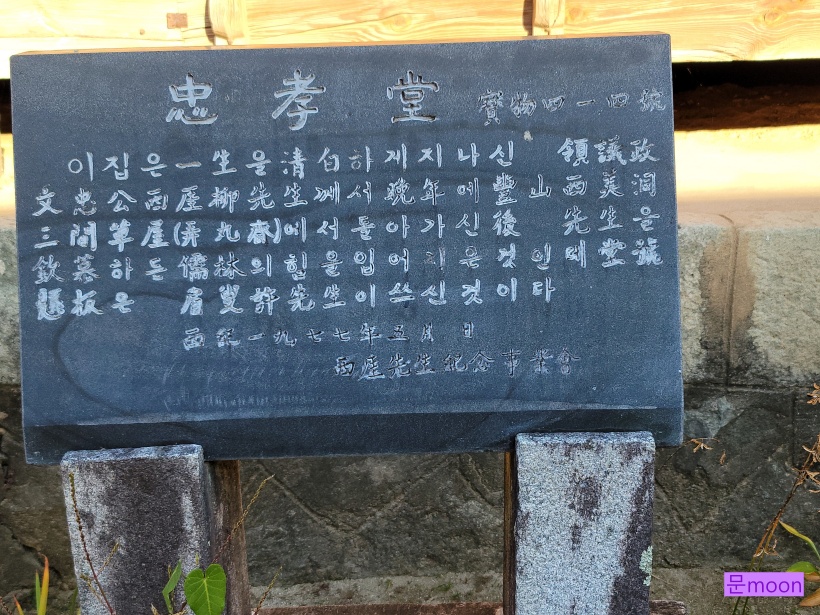 忠孝堂 寶物四一四號
이집은一生을淸白하게지나신 領議政
文忠公西厓柳先生께서晩年에豊山西美洞
三間草屋(弄丸齋)에서돌아가신後 先生을
欽慕하든儒林의힘을입어지은것인데堂號
懸板은 眉叟許先生이쓰신것이다
西紀一九七七年五月 日
西厓先生紀念事業會
문moon